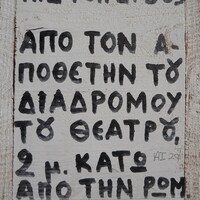 ΑΠΟ ΤΟΝ Α-
ΠΟΘΕΤΗΝ ΤΟΥ
ΔΙΑΔΡΟΜΟΥ
ΤΟΥ ΘΕΑΤΡΟΥ,
2 μ. ΚΑΤΩ
ΑΠΟ ΤΗΝ ΡΩΜ.